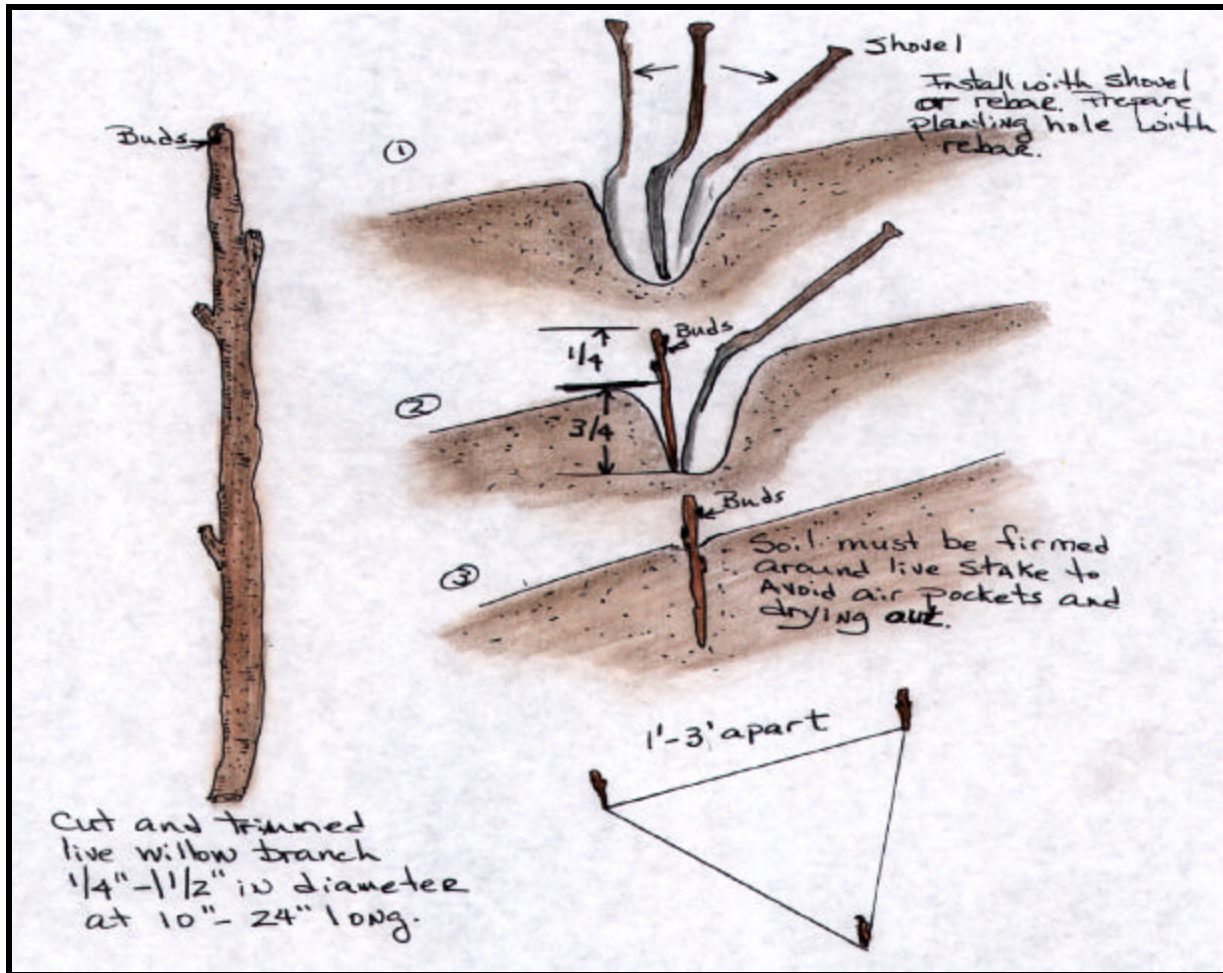 Buds
①
Shovel
Install with shovel
or rebar. Prepare
planting hole with
rebar.
②
1/4
Buds
3/4
③
Buds
Soil must be firmed
around live stake to
Avoid air pockets and
drying out.
1'-3' apart
Cut and trimmed
live willow branch
1/4"-1 1/2" in diameter
at 10"-24" long.